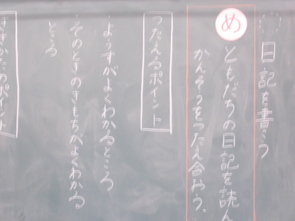 日記を書こう
め
ともだちの日記を読ん
かんそうをつたえ合おう。
つたえるポイント
ようすがよくわかるところ
そのときのきもちがよくわかる
ところ